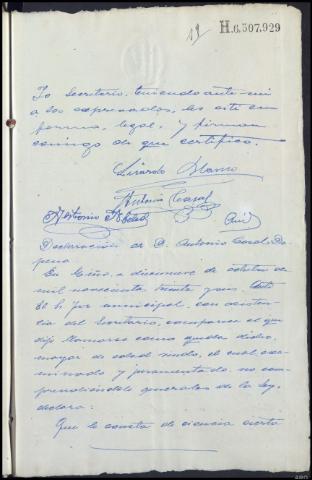 19 H.6,507,929
Yo Secretario, teniendo ante mi
a los expresados, les cité en
forma legal, y firman
conmigo de que certifico.
Lisardo Blanco
Antonio Casal
Antonio
Declaración de D. Antonio Casal Do-
pena
En a diecinueve de octubre de
mil novecientos treinta y
el Sr. Juez municipal, con asisten-
cia del Secretario, comparece el que
dijo llamarse como queda dicho,
mayor de edad, el cual exa-
minado y juramentado no com-
prendiéndole generales de la ley,
declara:
Que le consta de ciencia cierta